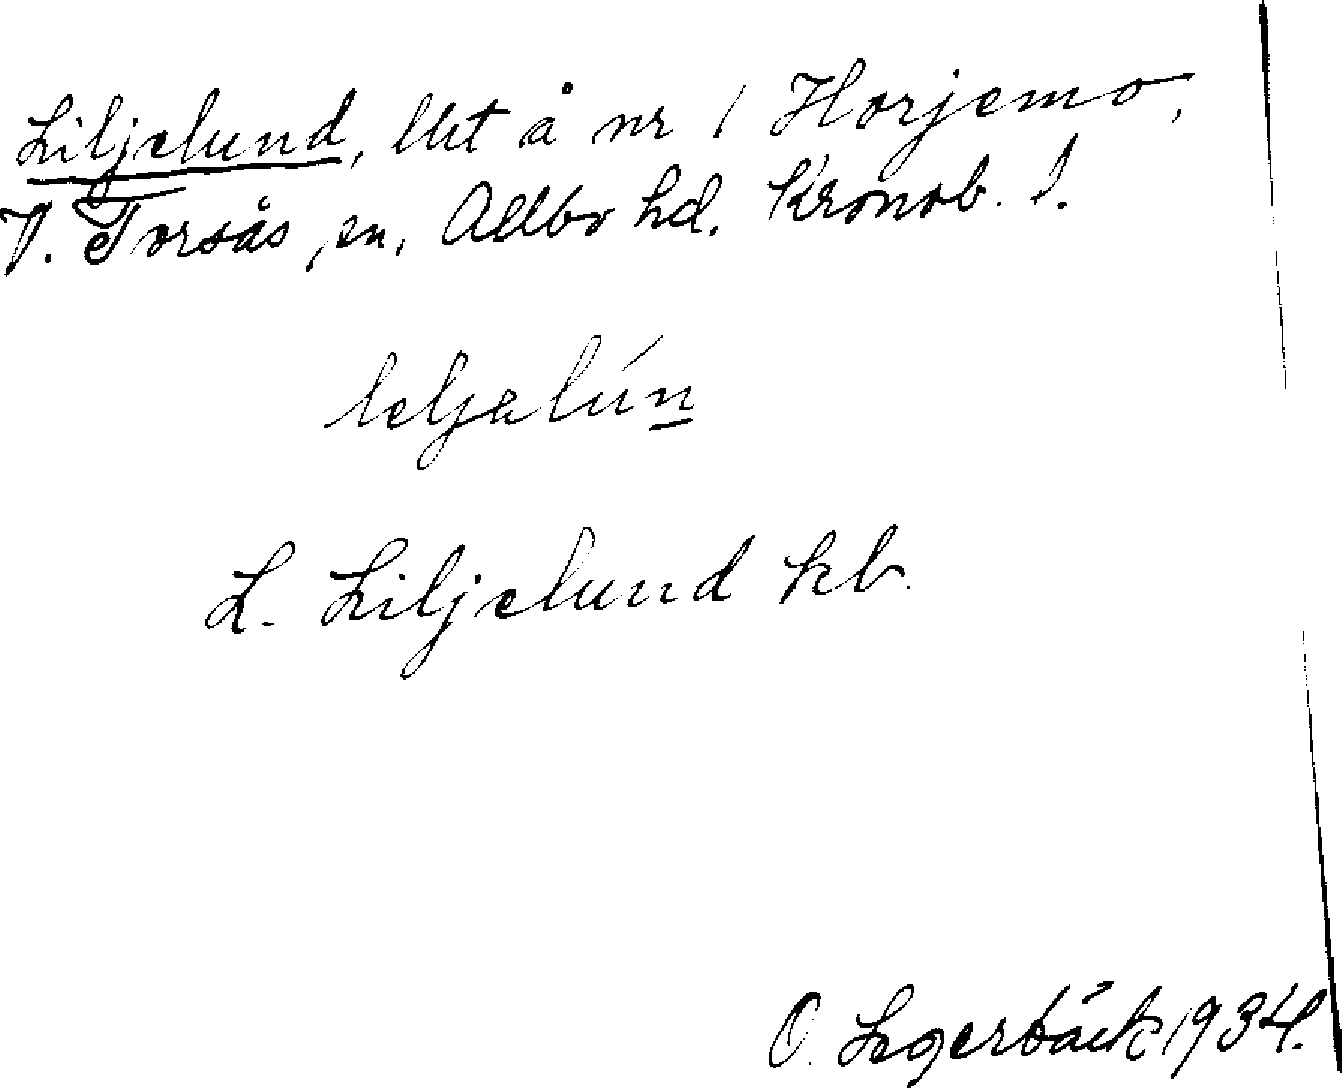 Liljelund, lht å nr 1 Horjemo,
V. Torsås sn, Allbo hd. Kronob. l.
leljalún
L. Liljelund kb.
O. Legerbäck 1934.